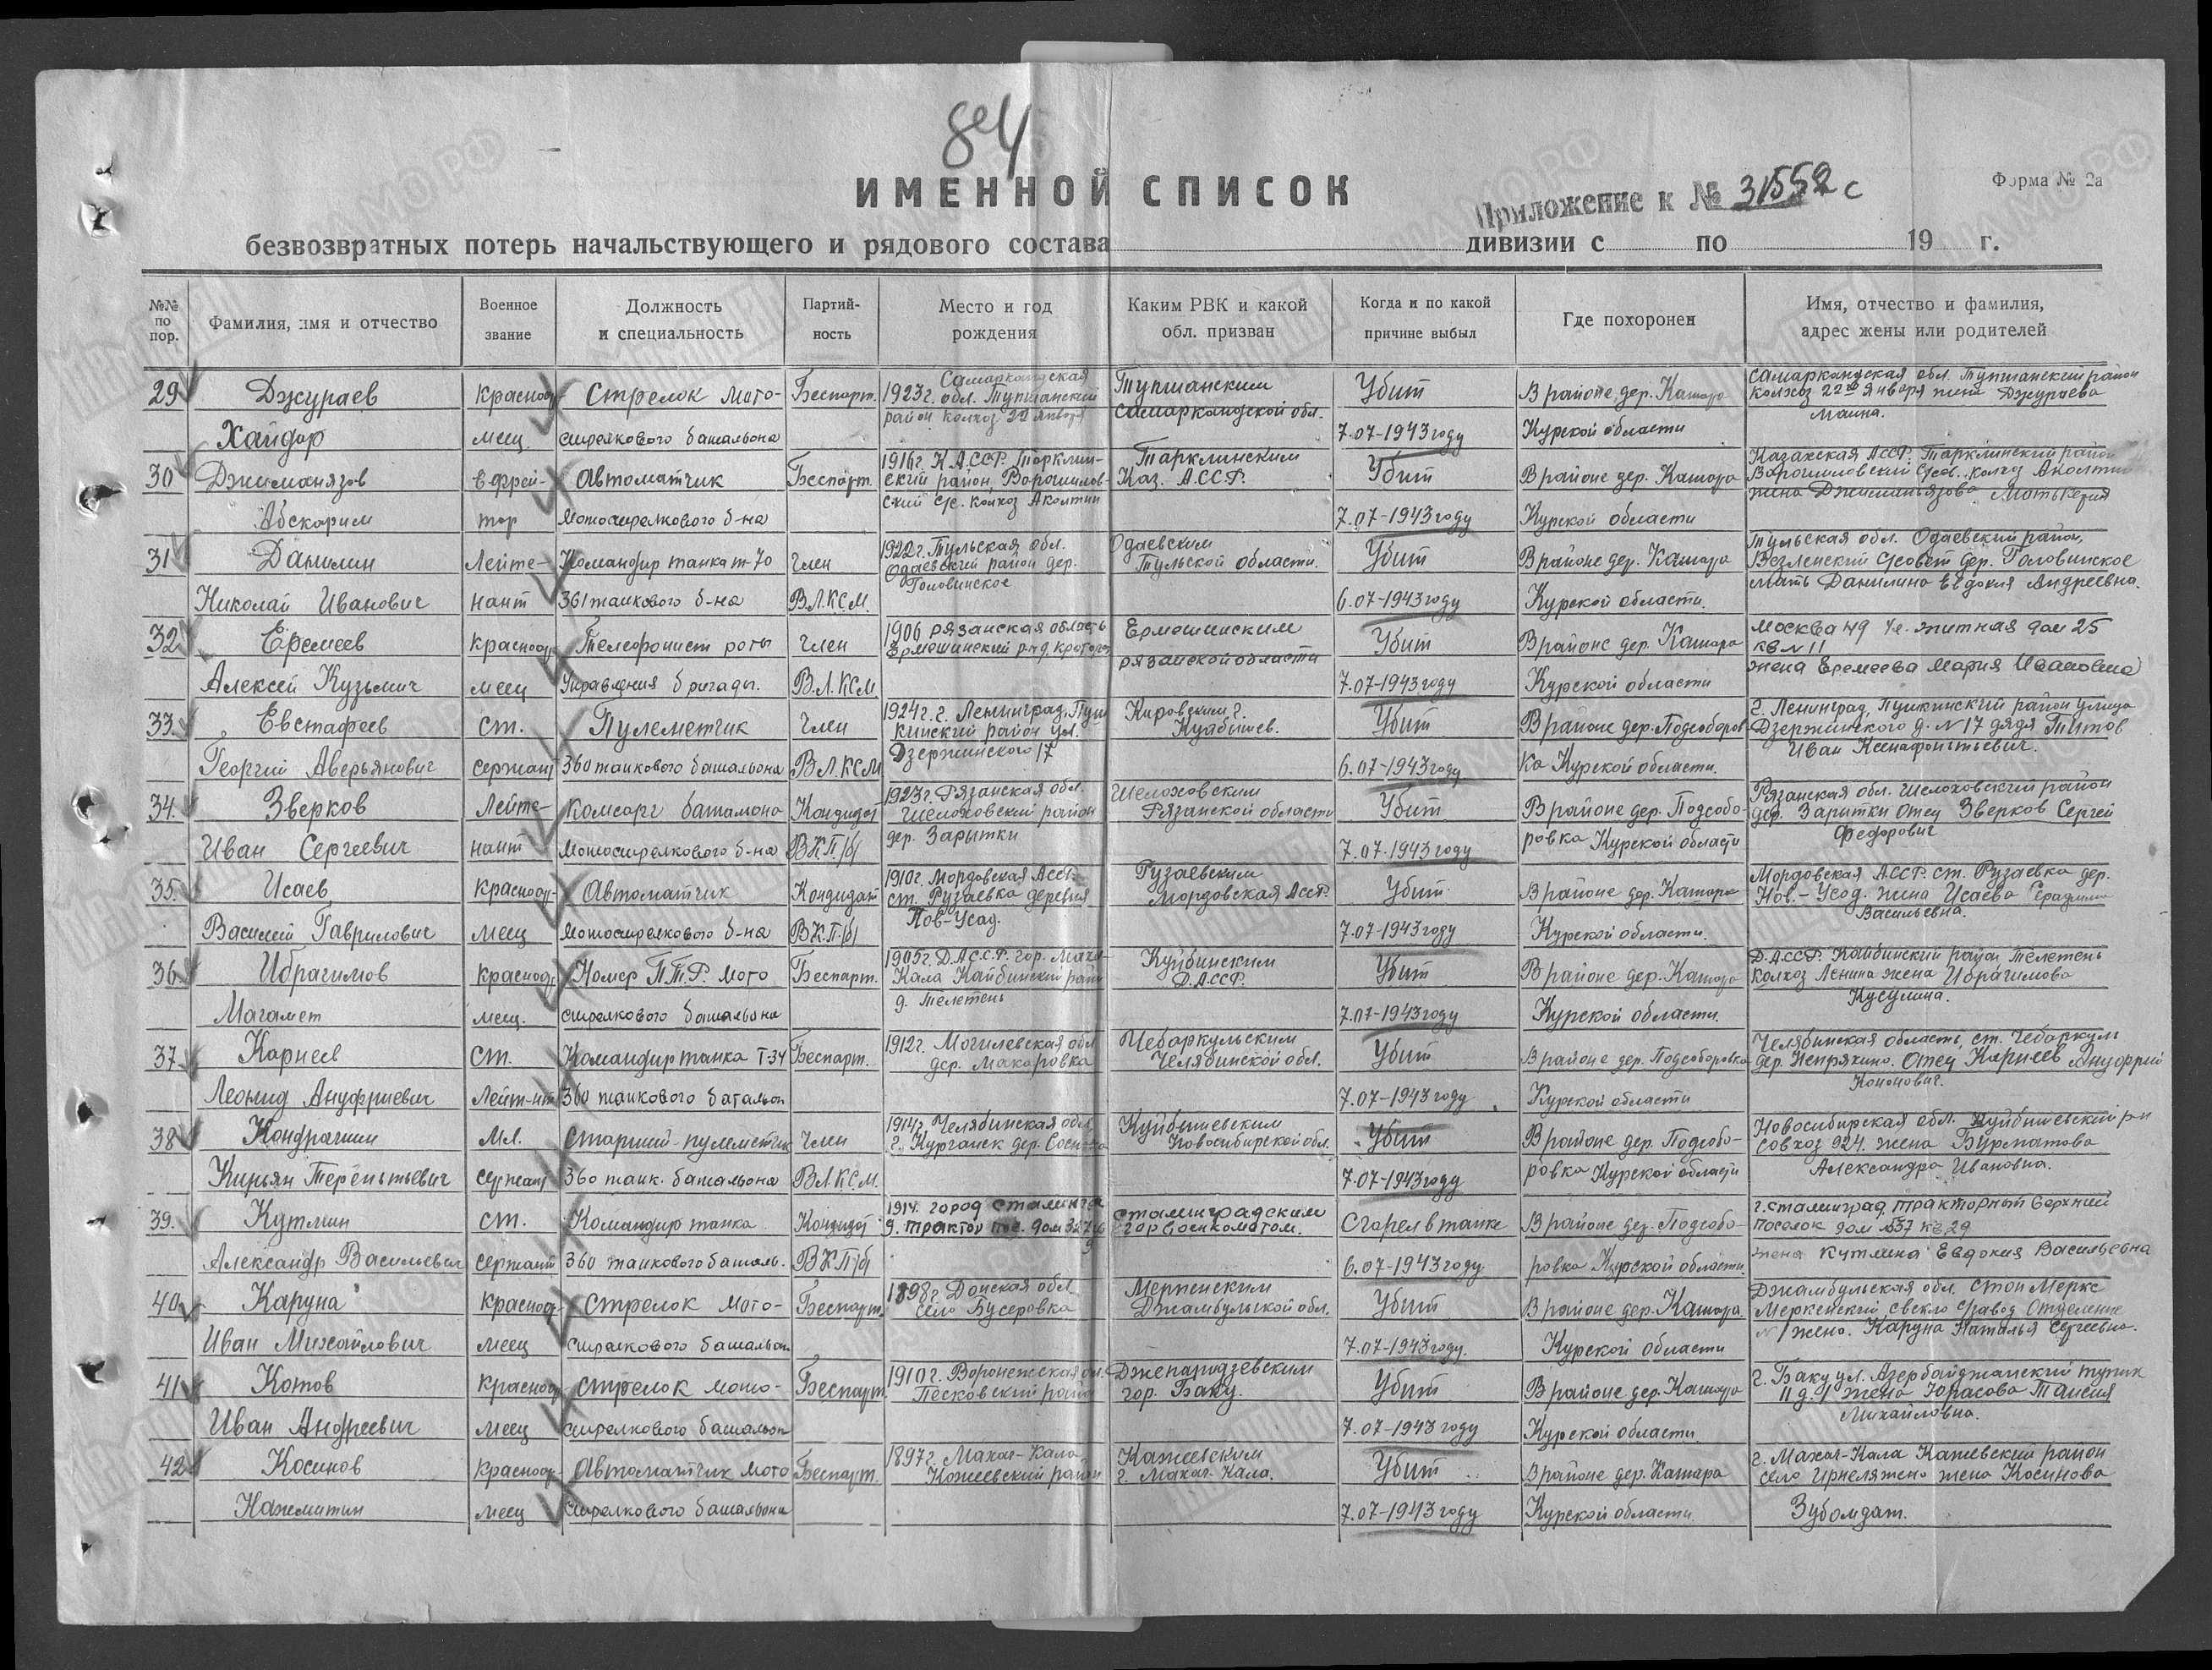 84
ИМЕННОЙ СПИСОК
Приложение к № 31552с
Форма № 2а
безвозвратных потерь начальствующего и рядового состава дивизии с по 19 г.
№№ по пор.
Фамилия, имя и отчество
Военное звание
Должность и специальность
Партий- ность
Место и год рождения
Каким РВК и какой обл. призван
Когда и по какой причине выбыл
Где похоронен
Имя, отчество и фамилия, адрес жены или родителей
29 Джураев Хайдар
Красноар меец
Стрелок мото- стрелкового батальона
Беспарт.
1923г. Самаркандская обл. район колхоз 22 января
Самаркандской обл.
Убит 7.07-1943 году
В районе дер. Кашара Курской области
Самаркандская обл. район колхоз 22го января жена Джураева
30 Джиманязов Абскарим
Ефрей- тор
Автоматчик мотострелкового б-на
Беспарт.
1916г. К.АССР. ский район, Ворошилов- ский с/с. колхоз
Тарклинским Каз. АССР.
Убит 7.07-1943 году
В районе дер. Кашара Курской области
Казахская АССР. Тарклинский район Ворошиловский колхоз жена
31 Данилин Николай Иванович
Лейте- нант
Командир танка т-70 361 танкового б-на
Член В.Л.К.С.М.
1922г. Тульская обл. Одоевский район дер. Головинское
Одаевским Тульской области.
Убит 6.07-1943 году
В районе дер. Кашара Курской области.
Тульская обл. Одаевский район, дер. Головинское мать Данилина Евдокия Андреевна.
32 Еремеев Алексей Кузьмич
Красноар меец
Телефонист роты управления бригады.
Член В.Л.КСМ
1906 рязанская область Ермешинский р-н д.
Ермешинским рязанской области
Убит 7.07-1943 году
В районе дер. Кашара Курской области
Москва 49 ул. житная дом 25 кв N 11 жена Еремеева Мария Ивановна
33. Евстафеев Георгий Аверьянович
Ст. сержант
Пулеметчик 360 танкового батальона
Член В.Л.КСМ
1924г. г. Ленинград, Пуш кинский район ул. Дзержинского 17
Кировским г. Куйбышев.
Убит 6.07-1943 году
В районе дер. Подсоборов ка Курской области.
г. Ленинград, Пушкинский район улица Дзержинского д. N 17 дядя Титов Иван Ксенафонтьевич.
34. Зверков Иван Сергеевич
Лейте- нант
Комсорг батальона мотострелкового б-на
Кандидат ВКП/б/
1923г. Рязанская обл. Шелоховский район дер. Зарытки
Шелоховским Рязанской области
Убит 7.07-1943 году
В районе дер. Подсобо- ровка Курской области
Рязанская обл. Шелоховский район дер. Зарытки отец Зверков Сергей Федорович
35. Исаев Василий Гаврилович
Красноар- меец
Автоматчик мотострелкового б-на
Кандидат ВКП/б/
1910г. Мордовская АССР. ст. Рузаевка деревня Нов-Усад.
Рузаевским Мордовская АССР.
Убит 7.07-1943 году
В районе дер. Кашара Курской области.
Мордовская АССР. ст. Рузаевка дер. Нов.-Усад. жена Исаева Васильевна.
36. Ибрагимов Магамет
Красноар меец.
Номер ПТР. мото стрелкового батальона
Беспарт.
1905г. Д.АССР. гор. Махач- Кала Кайбинский район д. Телетень
Куйбинским Д.АССР.
Убит 7.07-1943 году
В районе дер. Кашара Курской области.
Д.АССР. Кайбинский район Телетень колхоз Ленина жена Ибрагимова
37. Карнеев Леонид Ануфриевич
Ст. Лейт-нт
Командир танка Т-34 360 танкового батальон
Беспарт.
1912г. Могилевская обл дер. Макаровка
Чебаркульским Челябинской обл.
Убит 7.07-1943 году
В районе дер. Подсоборовка Курской области
Челябинская область, ст. Чебаркуль дер. Непряхино. Отец Карнеев Ануфрий Кононович.
38 Кондрашин Кирьян Терентьевич
Мл. сержант
Старший-пулеметчик 360 танк. батальона
Член ВЛ.К.С.М.
1914г. Челябинская обл. дер.
Куйбышевским Новосибирской обл.
Убит 7.07-1943 году
В районе дер. Подсобо- ровка Курской области
Новосибирская обл. Куйбышевский р-н совхоз 924. жена Бурматова Александра Ивановна.
39. Кутмин Александр Васильевич
Ст. сержант
Командир танка 360 танкового баталь.
Кандидат ВКП/б/
1914. город
сталинградским горвоенкоматом.
Сгорел в танке 6.07-1943 году
В районе дер. Подсобо- ровка Курской области.
г. сталинград, тракторный верхний поселок дом жена Кутмина Евдокия Васильевна
40 Каруна Иван Михайлович
Красноар меец
Стрелок мото- стрелкового батальон
Беспарт.
1898г. Донская обл село Бусеровка
Меркенским Джамбульской обл.
Убит 7.07-1943 году.
В районе дер. Кашара. Курской области
Джамбульская обл. Меркенский отделение N 1 жена. Каруна Наталья Сергеевна.
41 Котов Иван Андреевич
Красноар меец
Стрелок мото- стрелкового батальон
Беспарт.
1910г. Воронежская Песковский район
гор. Баку.
Убит 7.07-1943 году
В районе дер. Кашара Курской области
г. Баку ул. Азербайджанский тупик жена Таисия Михайловна.
42 Косинов Кажмитин
Красноар меец
Автоматчик мото стрелкового батальона
Беспарт.
1897г. Махач-Кала, район
г. Махач-Кала.
Убит 7.07-1943 году
В районе дер. Кашара Курской области
г. Махач-Кала район село жена Косинова